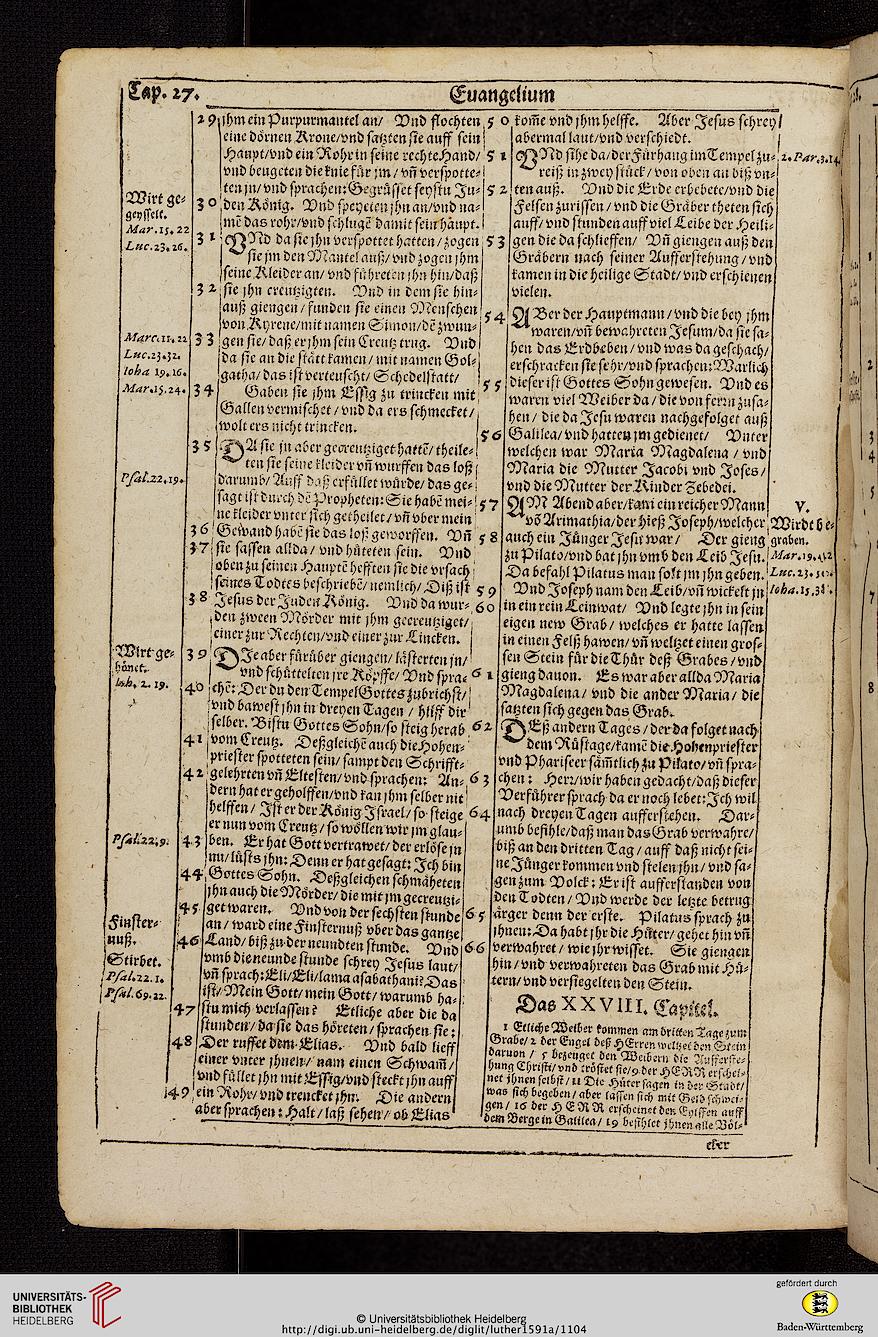 Cap. 27.
Euangelium
29 jhm ein Purpurmantel an/ Vnd flochten
eine dörnen Krone/vnd satzten sie auff sein
Haupt/vnd ein Rohr in seine rechte Hand/
vnd beugeten die knie für jm/ vn̄ verspotte-
ten jn/ vnd sprachen: Gegrüsset seystu Ju-
30 den König. Vnd speyeten jhn an/vnd na-
mē das rohr/vnd schlugē damit sein häupt.
31 VNd da sie jhn verspottet hatten/ zogen
sie jm den Mantel auß/ vnd zogen jhm
seine Kleider an/ vnd führeten jhn hin/daß
32 sie jhn creutzigten. Vnd in dem sie hin-
auß giengen/ funden sie einen Menschen
von Kyrene/mit namen Simon/dē zwun-
33 gen sie/ daß er jhm sein Creutz trug. Vnd
da sie an die stätt kamen/ mit namen Gol-
gatha/ das ist verteuscht/ Schedelstatt/
34 Gaben sie jhm Essig zu trincken mit
Gallen vermischet/ vnd da ers schmecket/
wolt ers nicht trincken.
35 DA sie jn aber gecreutziget hattē/ theile-
ten sie seine kleider vn̄ wurffen das loß
darumb/ Auff daß erfüllet würde/ das ge-
sagt ist durch dē Propheten: Sie habē mei-
ne kleider vnter sich getheilet/ vn̄ vber mein
36 Gewand habē sie das loß geworffen. Vn̄
37 sie sassen allda/ vnd hüteten sein. Vnd
oben zu seinen Hauptē hefften sie die vrsach
seines Todtes beschriebē/ nemlich/ Diß ist
38 Jesus der Juden König. Vnd da wur-
den zween Mörder mit jhm gecreutziget/
einer zur Rechten/vnd einer zur Lincken.
39 DJe aber fürüber giengen/ lästerten jn/
vnd schüttelten jre Köpffe/ Vnd sprac
40 chē: Der du den Tempel Gottes zubrichst/
vnd bawest jhn in dreyen Tagen/ hilff dir
selber. Bistu Gottes Sohn/so steig herab
41 vom Creutz. Deßgleichē auch die Hohen-
priester spotteten sein/ sampt den Schrifft-
42 gelehrten vn̄ Eltesten/ vnd sprachen: An-
dern hat er geholffen/vnd kan jhm selber nit
helffen/ Ist er der König Israel/ so steige
er nun vom Creutz/ so wöllen wir jm glau-
43 ben. Er hat Gott vertrawet/ der erlöse jn
nu/ lüsts jhn: Denn er hat gesagt: Ich bin
44 Gottes Sohn. Deßgleichen schmäheten
jhn auch die Mörder/ die mit jm gecreutzi-
45 get waren. Vnd von der sechsten stunde
an/ ward eine Finsternuß vber das gantze
46 Land/ biß zu der neundten stunde. Vnd
vmb die neunde stunde schrey Jesus laut/
vn̄ sprach: Eli/ Eli/ lama asabathani? Das
ist/ Mein Gott/ mein Gott/ warumb ha-
47 stu mich verlassen? Etliche aber die da
stunden/ da sie das höreten/ sprachen sie:
48 Der ruffet dem Elias. Vnd bald lieff
einer vnter jhnen/ nam einen Schwam̄/
vnd füllet jhn mit Essig/vnd steckt jhn auff
49 ein Rohr/ vnd trencket jhn. Die andern
aber sprachen: Halt/ laß sehen/ ob Elias
50 kom̄e vnd jhm helffe. Aber Jesus schrey
abermal laut/vnd verschiedt.
51 VNd sihe da/der Fürhang im Tempel zu-
reiß in zwey stück/ von oben an biß vn-
52 ten auß. Vnd die Erde erbebete/vnd die
Felsen zurissen/ vnd die Gräber theten sich
auff/ vnd stunden auff viel Leibe der Heili-
53 gen die da schlieffen/ Vn̄ giengen auß den
Gräbern nach seiner Aufferstehung/ vnd
kamen in die heilige Stadt/ vnd erschienen
vielen.
54 ABer der Hauptmann/ vnd die bey jhm
waren/vn̄ bewahreten Jesum/da sie sa-
hen das Erdbeben/ vnd was da geschach/
erschracken sie sehr/vnd sprachen: Warlich
55 dieser ist Gottes Sohn gewesen. Vnd es
waren viel Weiber da/ die von ferrn zusa-
hen/ die da Jesu waren nachgefolget auß
56 Galilea/ vnd hatten jm gedienet/ Vnter
welchen war Maria Magdalena/ vnd
Maria die Mutter Jacobi vnd Joses/
vnd die Mutter der Kinder Zebedei.
57 AM Abend aber/kam ein reicher Mann
vō Arimathia/der hieß Joseph/welcher
58 auch ein Jünger Jesu war/ Der gieng
zu Pilato/vnd bat jhn vmb den Leib Jesu.
Da befahl Pilatus man solt jm jhn geben.
59 Vnd Joseph nam den Leib/vn̄ wickelt jn
60 in ein rein Leinwat/ Vnd legte jhn in sein
eigen new Grab/ welches er hatte lassen
in einen Felß hawen/ vn̄ weltzet einen gros-
sen Stein für die Thür deß Grabes/ vnd
61 gieng dauon. Es war aber allda Maria
Magdalena/ vnd die ander Maria/ die
satzten sich gegen das Grab.
62 DEß andern Tages/ der da folget nach
dem Rüstage/kamē die Hohenpriester
vnd Phariseer sämtlich zu Pilato/ vn̄ spra-
63 chen: Herr/wir haben gedacht/daß dieser
Verführer sprach da er noch lebet: Ich wil
64 nach dreyen Tagen aufferstehen. Dar-
umb befihle/daß man das Grab verwahre/
biß an den dritten Tag/ auff daß nicht sei-
ne Jünger kommen vnd stelen jhn/ vnd sa-
gen zum Volck: Er ist aufferstanden von
den Todten/ Vnd werde der letzte betrug
65 ärger denn der erste. Pilatus sprach zu
jhnen: Da habt jhr die Hüter/ gehet hin vn̄
66 verwahret/ wie jhr wisset. Sie giengen
hin/ vnd verwahreten das Grab mit Hü-
tern/ vnd versiegelten den Stein.
Das XXVIII. Capitel.
1 Etliche Weiber kommen am dritten Tage zum
Grabe/ 2 der Engel deß HErren weltzet den Stein
daruon/ 5 bezeuget den Weibern die Aufferste-
hung Christi/ vnd tröstet sie/ 9 der HERR erschei-
net jhnen selbst/ 11 Die Hüter sagen in der Stadt/
was sich begeben/ aber lassen sich mit Geld schwei-
gen/ 16 der HERR erscheinet den Eylffen auff
dem Berge in Galilea/ 19 befihlet jhnen alle Völ-
cker
Wirt ge-
geysselt.
Mar.15.22
Luc.23.26.
Marc.11.22
Luc.23.32.
Ioha 19.16.
Mar.15.24.
Psal.22.19.
Wirt ge-
hönet.
Ioh. 2.19.
Psal.22.9.
Finster-
nuß.
Stirbet.
Psal.22.1.
Psal.69.22.
2.Par.3.14.
V.
Wirdt be-
graben.
Mar.15.42
Luc.23.50.
Ioha.15.38.
UNIVERSITÄTS-
BIBLIOTHEK
HEIDELBERG
© Universitätsbibliothek Heidelberg
http://digi.ub.uni-heidelberg.de/diglit/luther1591a/1104
gefördert durch
Baden-Württemberg